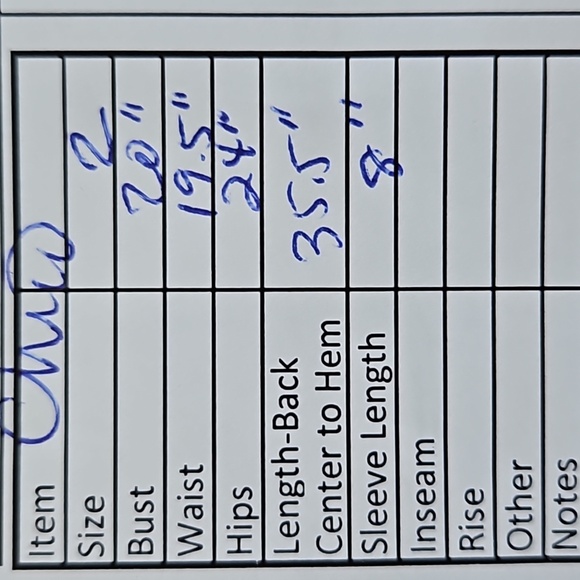 Item
Size 2
Bust 20"
Waist 19.5"
Hips 24"
Length-Back
Center to Hem 35.5"
Sleeve Length 8"
Inseam
Rise
Other
Notes